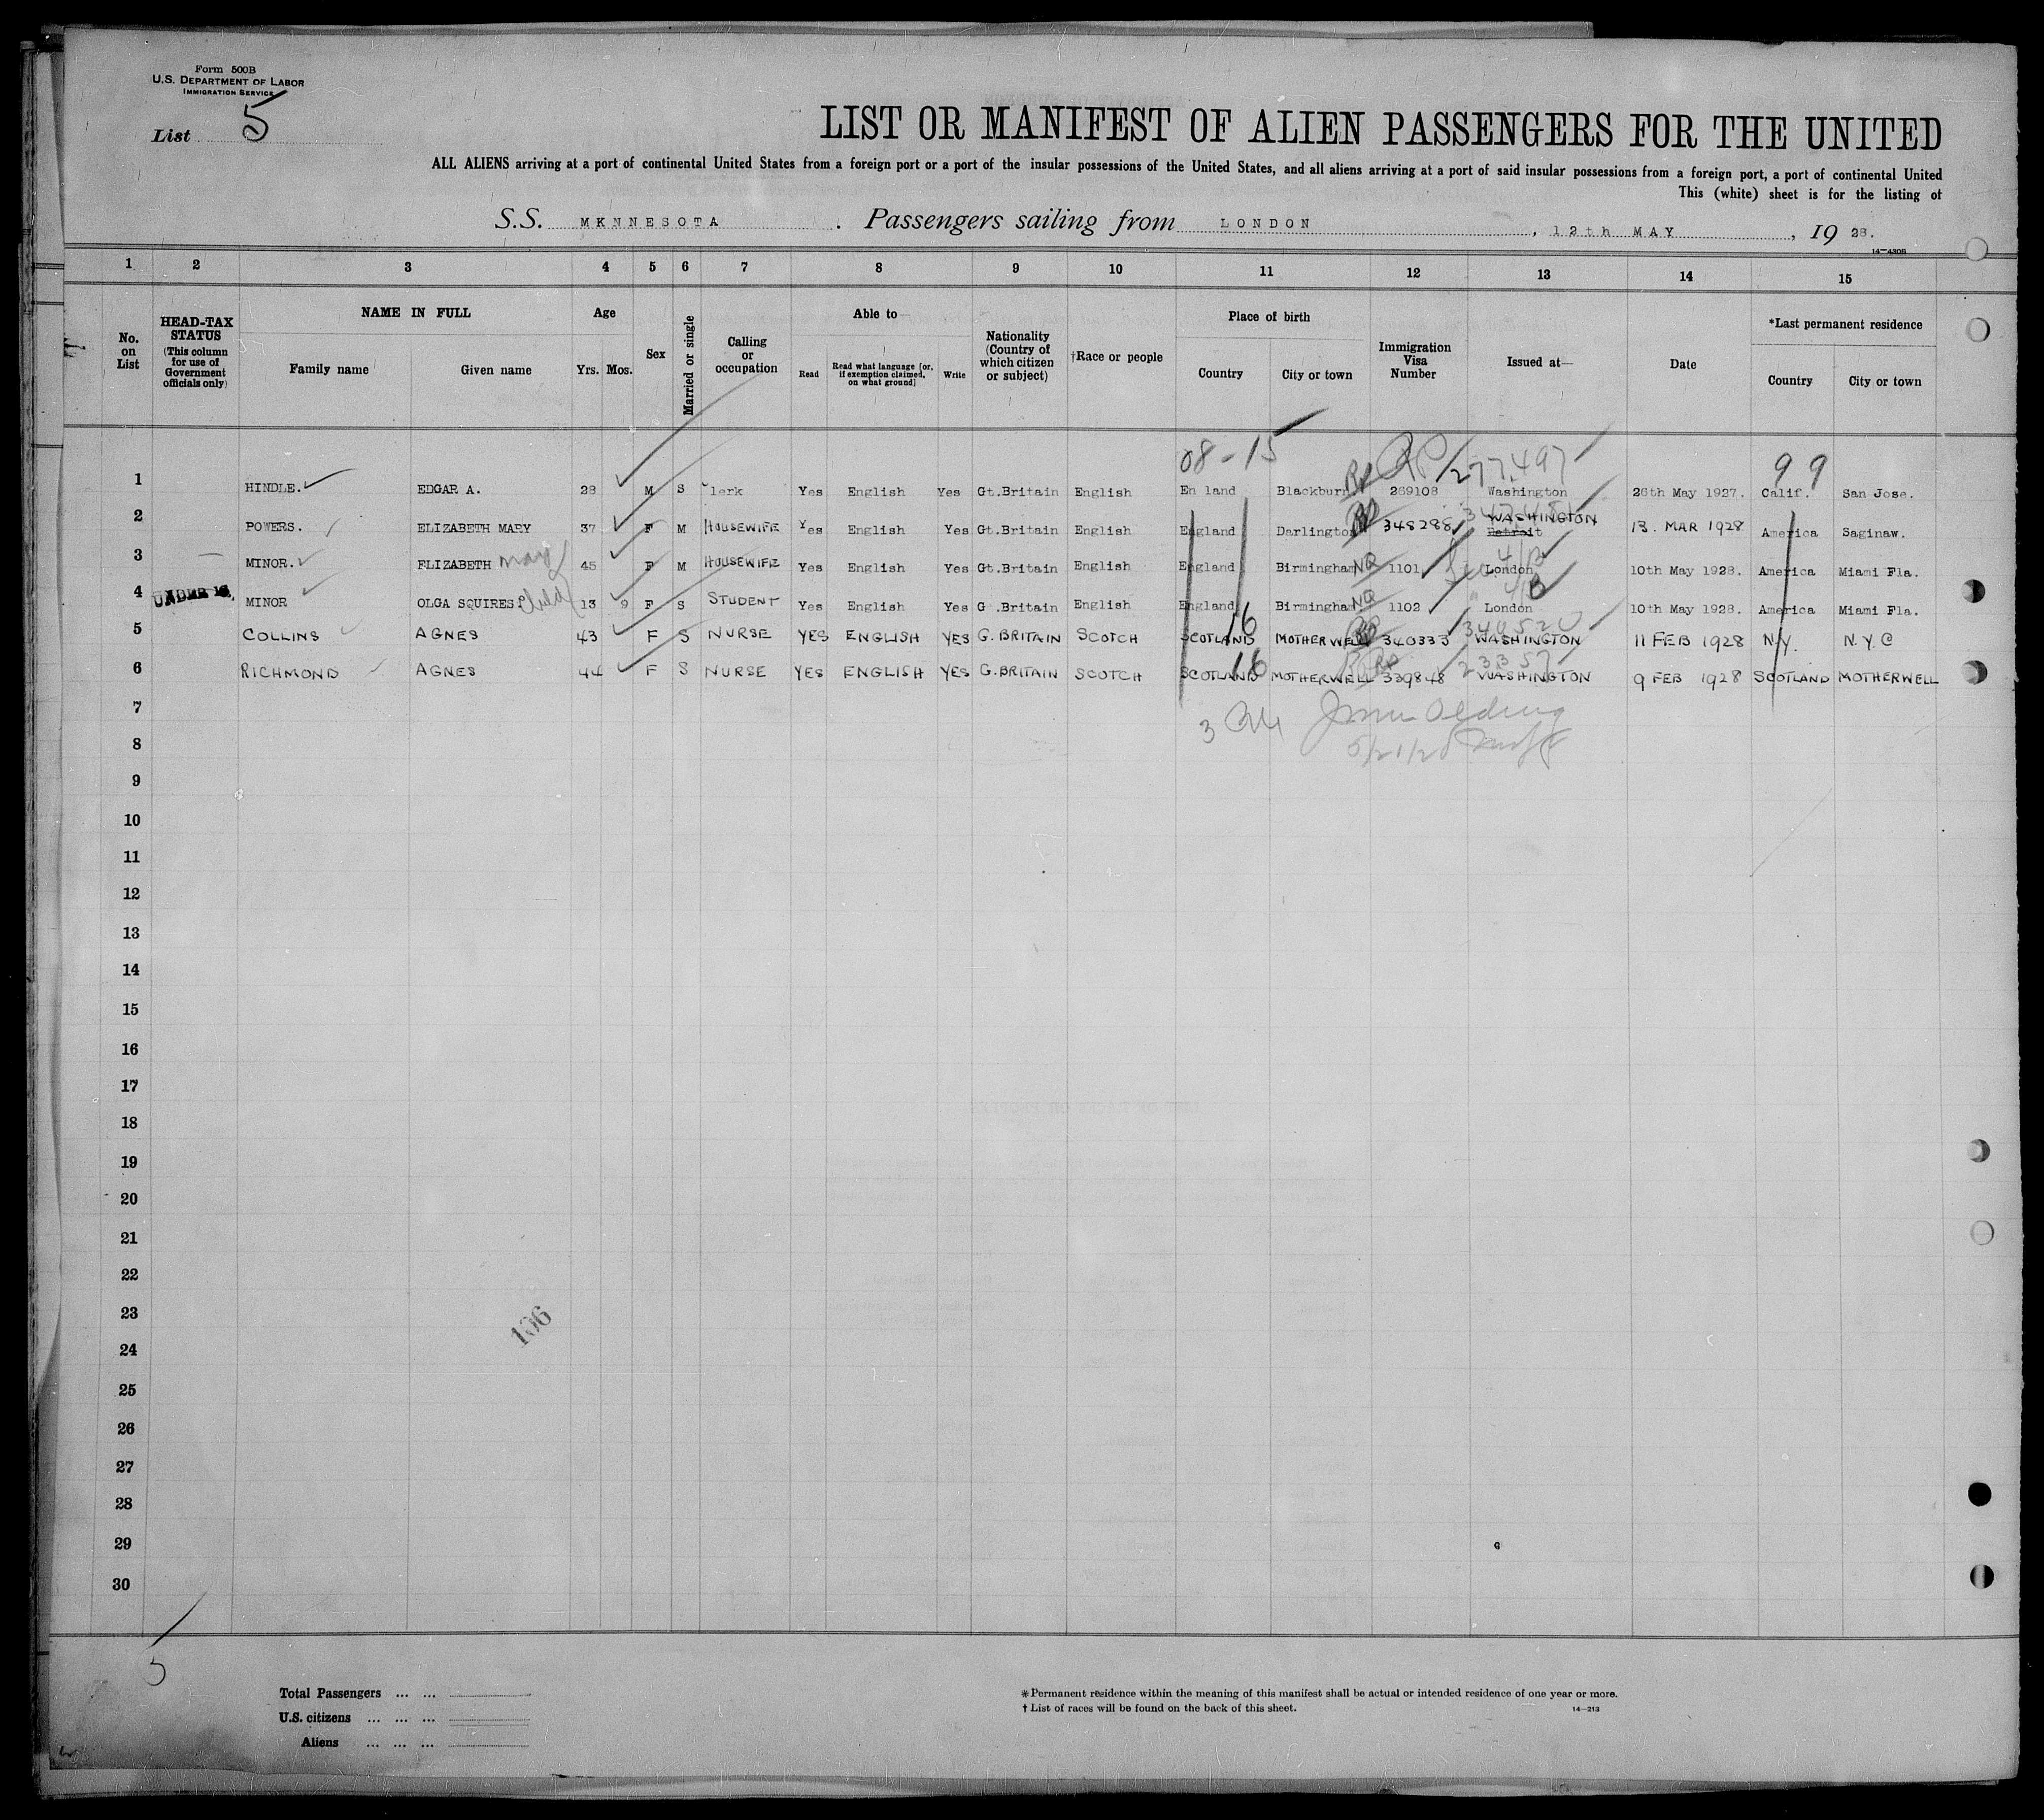 Form 500B
U.S. DEPARTMENT OF LABOR
IMMIGRATION SERVICE
List 5
LIST OR MANIFEST OF ALIEN PASSENGERS FOR THE UNITED
ALL ALIENS arriving at a port of continental United States from a foreign port or a port of the insular possessions of the United States, and all aliens arriving at a port of said insular possessions from a foreign port, a port of continental United
This (white) sheet is for the listing of
S.S. MKNNESOTA . Passengers sailing from LONDON , 12th MAY , 19 28.
14-4306
1 2 3 4 5 6 7 8 9 10 11 12 13 14 15
No. on List HEAD-TAX STATUS (This column for use of Government officials only) NAME IN FULL Family name Given name Age Yrs. Mos. Sex Married or single Calling or occupation Able to— Read Read what language [or, if exemption claimed, on what ground] Write Nationality (Country of which citizen or subject) †Race or people Place of birth Country City or town Immigration Visa Number Issued at— Date *Last permanent residence Country City or town
08-15 277,497 99
1 HINDLE. EDGAR A. 28 M S lerk Yes English Yes Gt.Britain English En land Blackburn. 269108 Washington 26th May 1927. Calif. San Jose.
2 POWERS. ELIZABETH MARY 37 F M HOUSEWIFE Yes English Yes Gt.Britain English England Darlington 348288 WASHINGTON Detroit 13. MAR 1928 America Saginaw.
3 MINOR. ELIZABETH May 45 F M HOUSEWIFE Yes English Yes Gt.Britain English England Birmingham NQ 1101 London 10th May 1928. America Miami Fla.
4 UNDER MINOR OLGA SQUIRES Child 13 9 F S STUDENT Yes English Yes G .Britain English England Birmingham NQ 1102 London 10th May 1928. America Miami Fla.
5 COLLINS AGNES 43 F S NURSE YES ENGLISH YES G. BRITAIN SCOTCH SCOTLAND 16 MOTHERWELL 340333 WASHINGTON 11 FEB 1928 N.Y. N.Y.C
6 RICHMOND AGNES 44 F S NURSE YES ENGLISH YES G. BRITAIN SCOTCH SCOTLAND 16 MOTHERWELL 339848 WASHINGTON 9 FEB 1928 SCOTLAND MOTHERWELL
7
8
9
10
11
12
13
14
15
16
17
18
19
20
21
22
23
106
24
25
26
27
28
29
30
5
Total Passengers ... ...
U.S. citizens ... ... ...
Aliens ... ... ...
* Permanent residence within the meaning of this manifest shall be actual or intended residence of one year or more.
† List of races will be found on the back of this sheet.
14-213